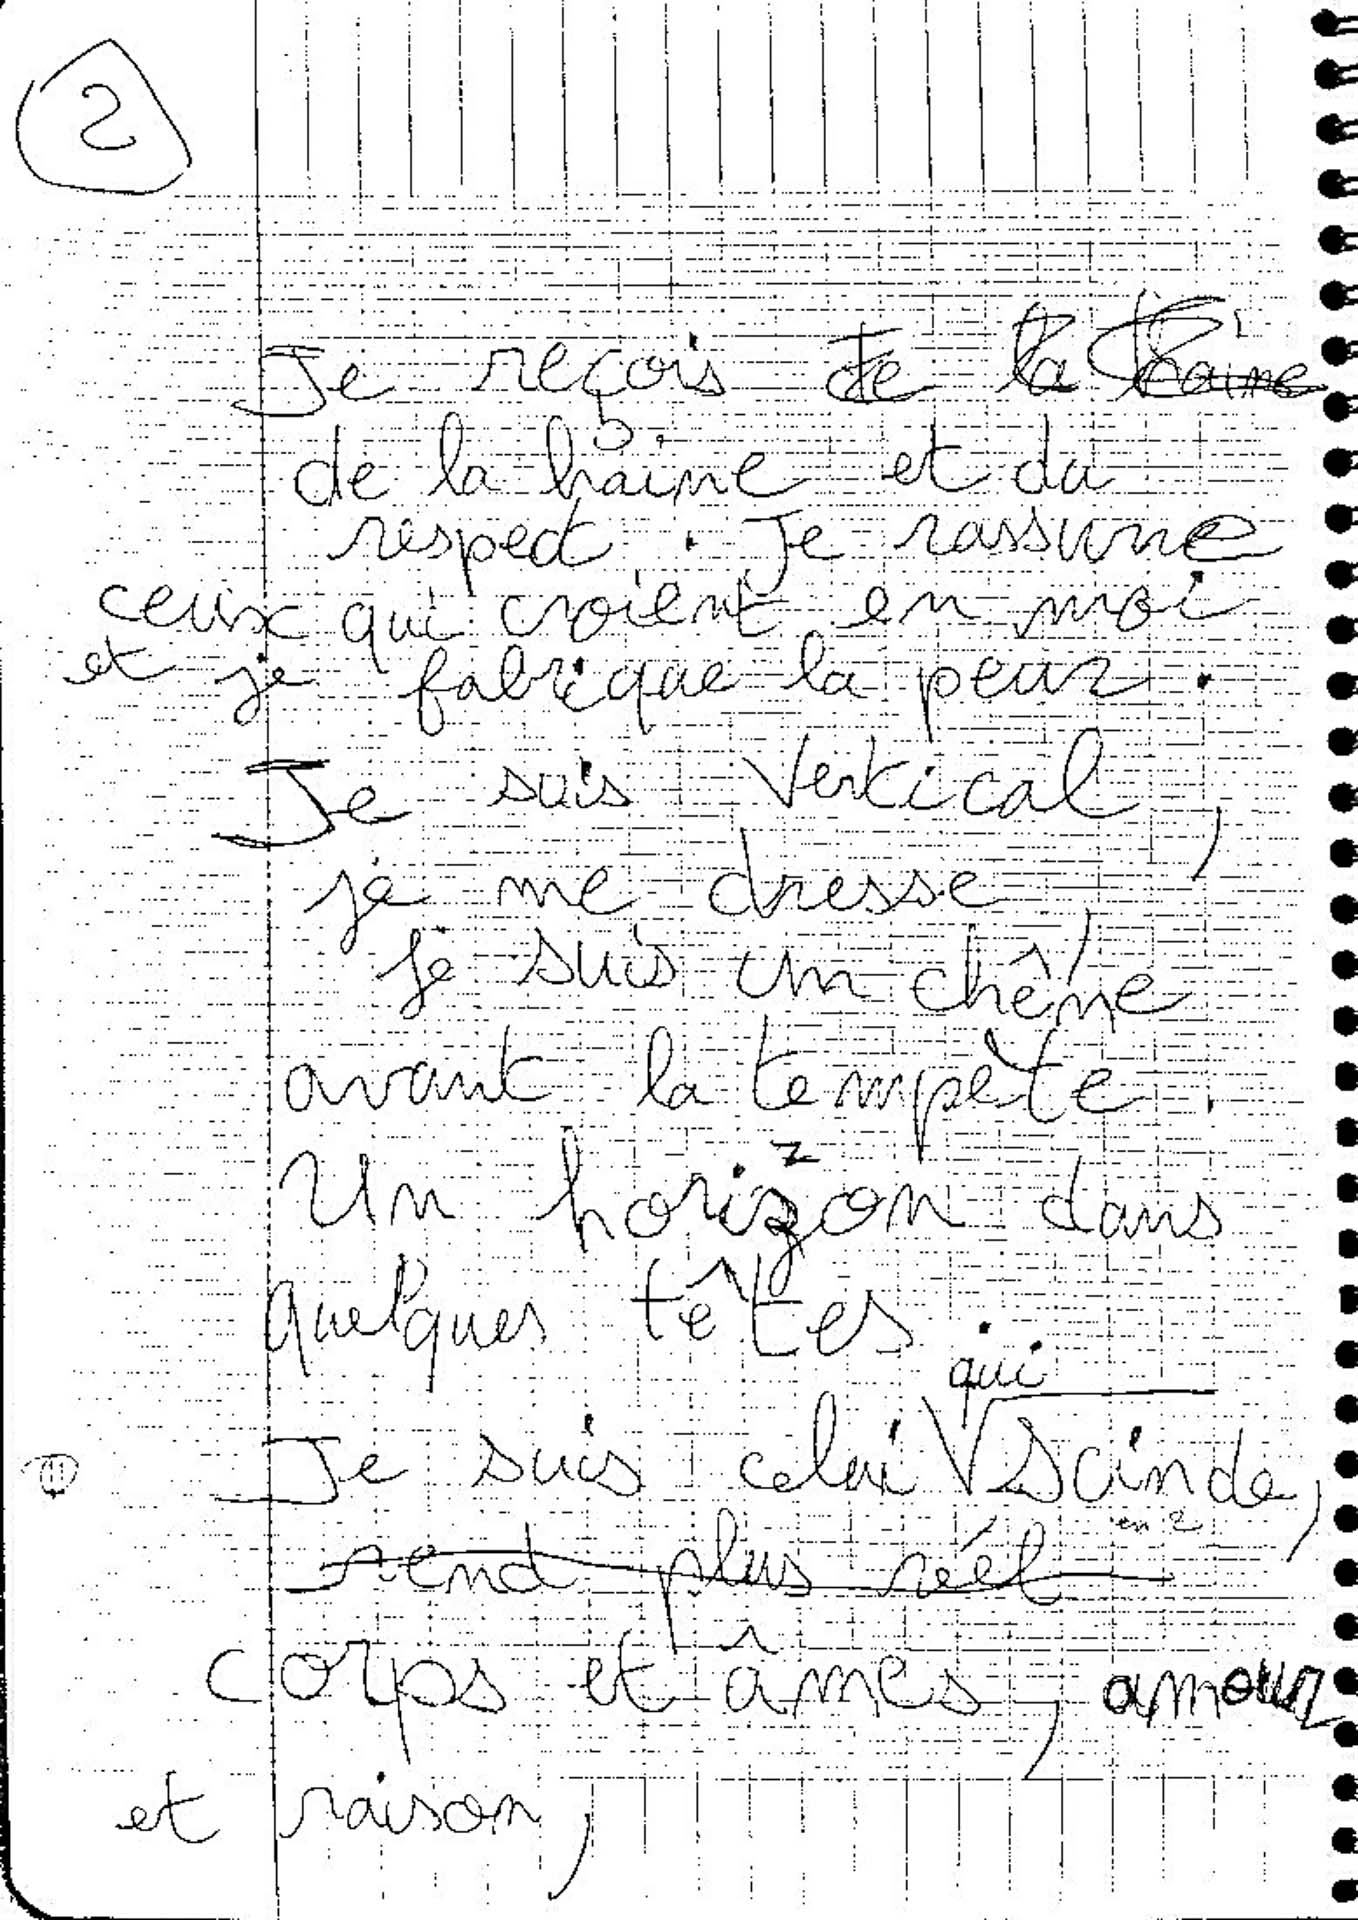 2
Je reçois de la haine
de la haine et du
respect. Je rassure
ceux qui croient en moi
et je fabrique la peur.
Je suis Vertical,
je me dresse,
je suis un chêne
avant la tempête.
Un horizon dans
quelques têtes.
qui
Je suis celui scinde,
en 2
rend plus réel
corps et âmes, amour
et raison,